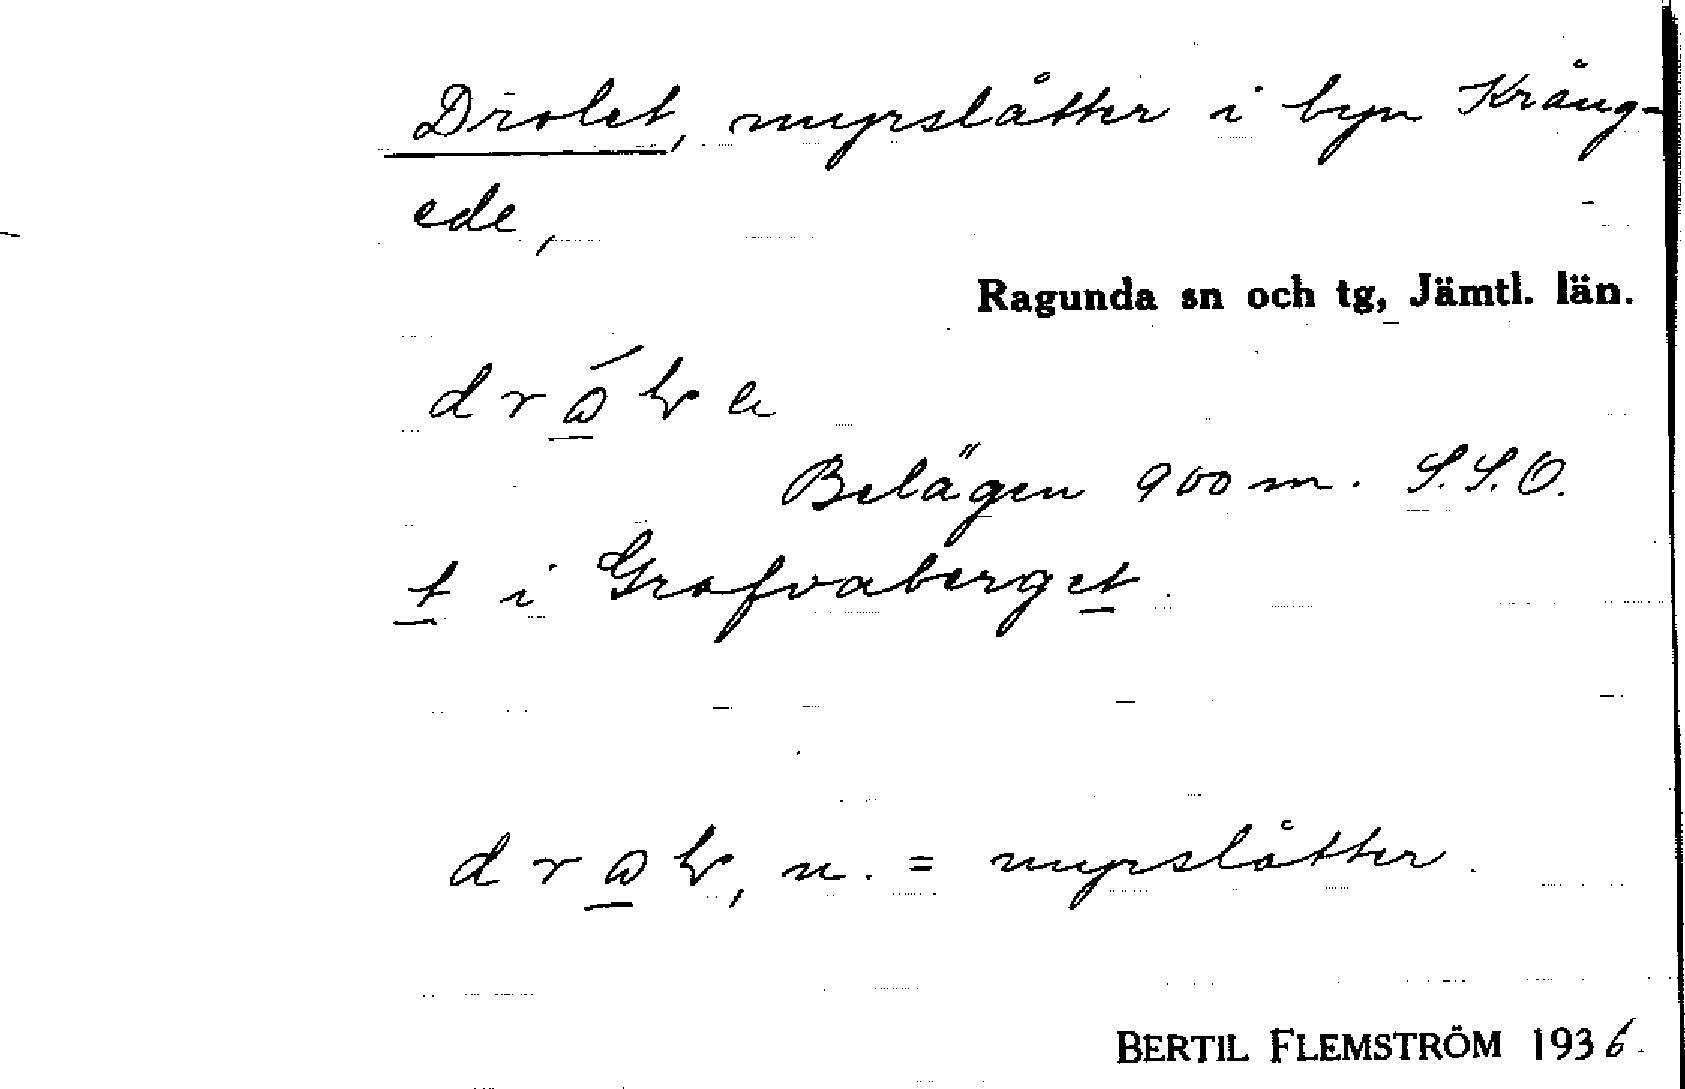 Drolet, myrslåtter i byn Krång-
ede,
Ragunda sn och tg, Jämtl. län.
Belägen 900 m. S.S.O.
t i Grafvaberget.
n. = myrslåtter.
BERTIL FLEMSTRÖM 1936